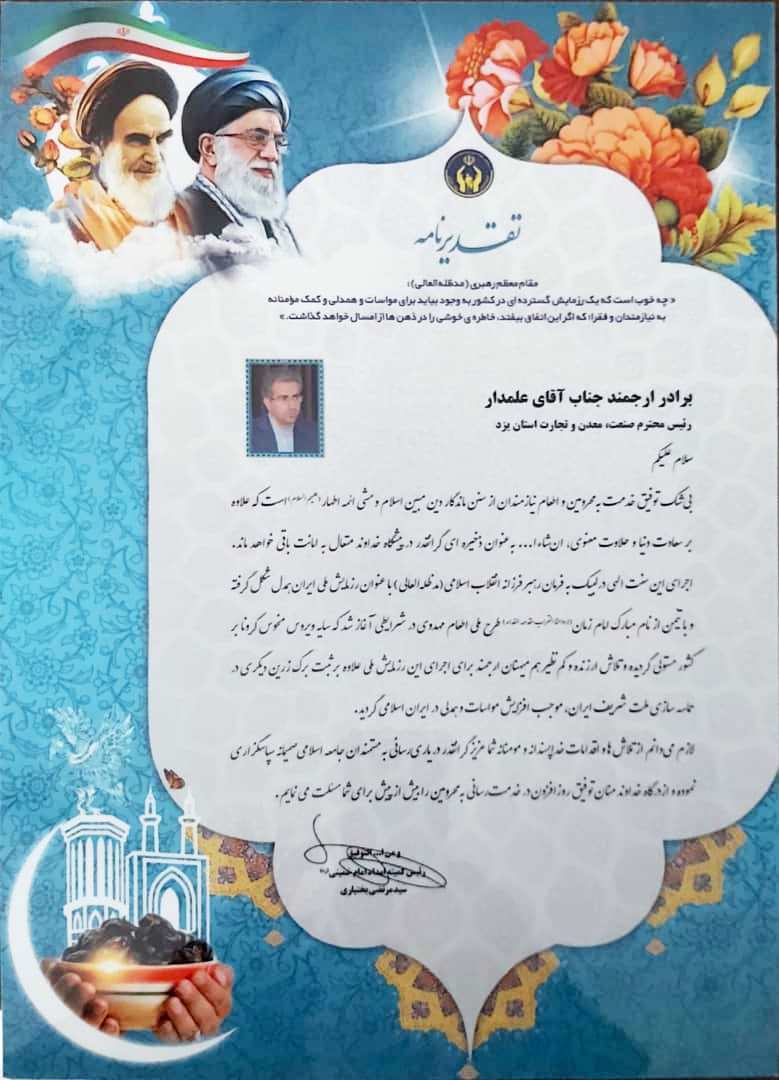 تقدیرنامه
مقام معظم رهبری (مدظله‌العالی):
« چه خوب است که یک رزمایش گسترده ای در کشور به وجود بیاید برای مواسات و همدلی و کمک مؤمنانه
به نیازمندان و فقرا؛ که اگر این اتفاق بیفتد، خاطره ی خوشی را در ذهن ها از امسال خواهد گذاشت. »
برادر ارجمند جناب آقای علمدار
رئیس محترم صنعت، معدن و تجارت استان یزد
سلام علیکم
بی شک توفیق خدمت به محرومین و اطعام نیازمندان از سنن ماندگار دین مبین اسلام و مشی ائمه اطهار (علیهم السلام) است که علاوه
بر سعادت دنیا و حلاوت معنوی، ان‌شاءا... به عنوان ذخیره ای گرانقدر در پیشگاه خداوند متعال به امانت باقی خواهد ماند.
اجرای این سنت الهی در لبیک به فرمان رهبر فرزانه انقلاب اسلامی (مدظله‌العالی) با عنوان رزمایش ملی ایران همدل شکل گرفته
و با تیمن از نام مبارک امام زمان طرح ملی اطعام مهدوی در شرایطی آغاز شد که سایه ویروس منحوس کرونا بر
کشور مستولی گردیده و تلاش ارزنده و کم نظیر هم میهنان ارجمند برای اجرای این رزمایش ملی علاوه بر ثبت برگ زرین دیگری در
حماسه سازی ملت شریف ایران، موجب افزایش مواسات و همدلی در ایران اسلامی گردید.
لازم می‌دانم از تلاش ها و اقدامات خداپسندانه و مومنانه شما عزیز گرانقدر در یاری رسانی به مستمندان جامعه اسلامی صمیمانه سپاسگزاری
نموده و از درگاه خداوند منان توفیق روز افزون در خدمت رسانی به محرومین را بیش از پیش برای شما مسئلت می نمایم.
و من ا... التوفیق
رئیس کمیته امداد امام خمینی (ره)
سید مرتضی بختیاری